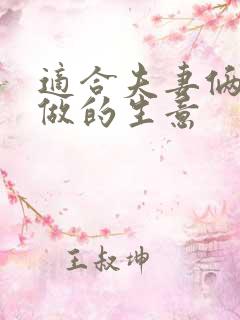 適合夫妻倆
做的生意
王叔坤